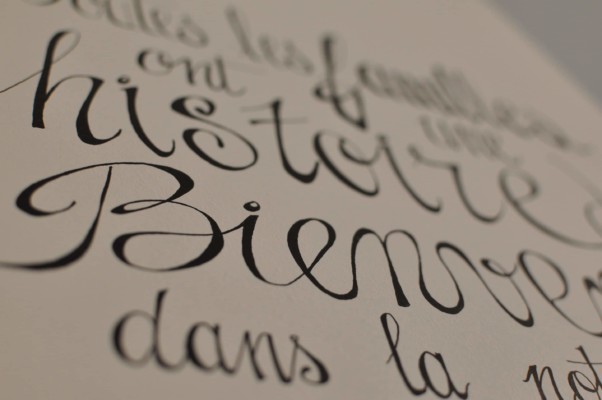 Toutes les familles
ont une
histoire
Bienven
dans la not